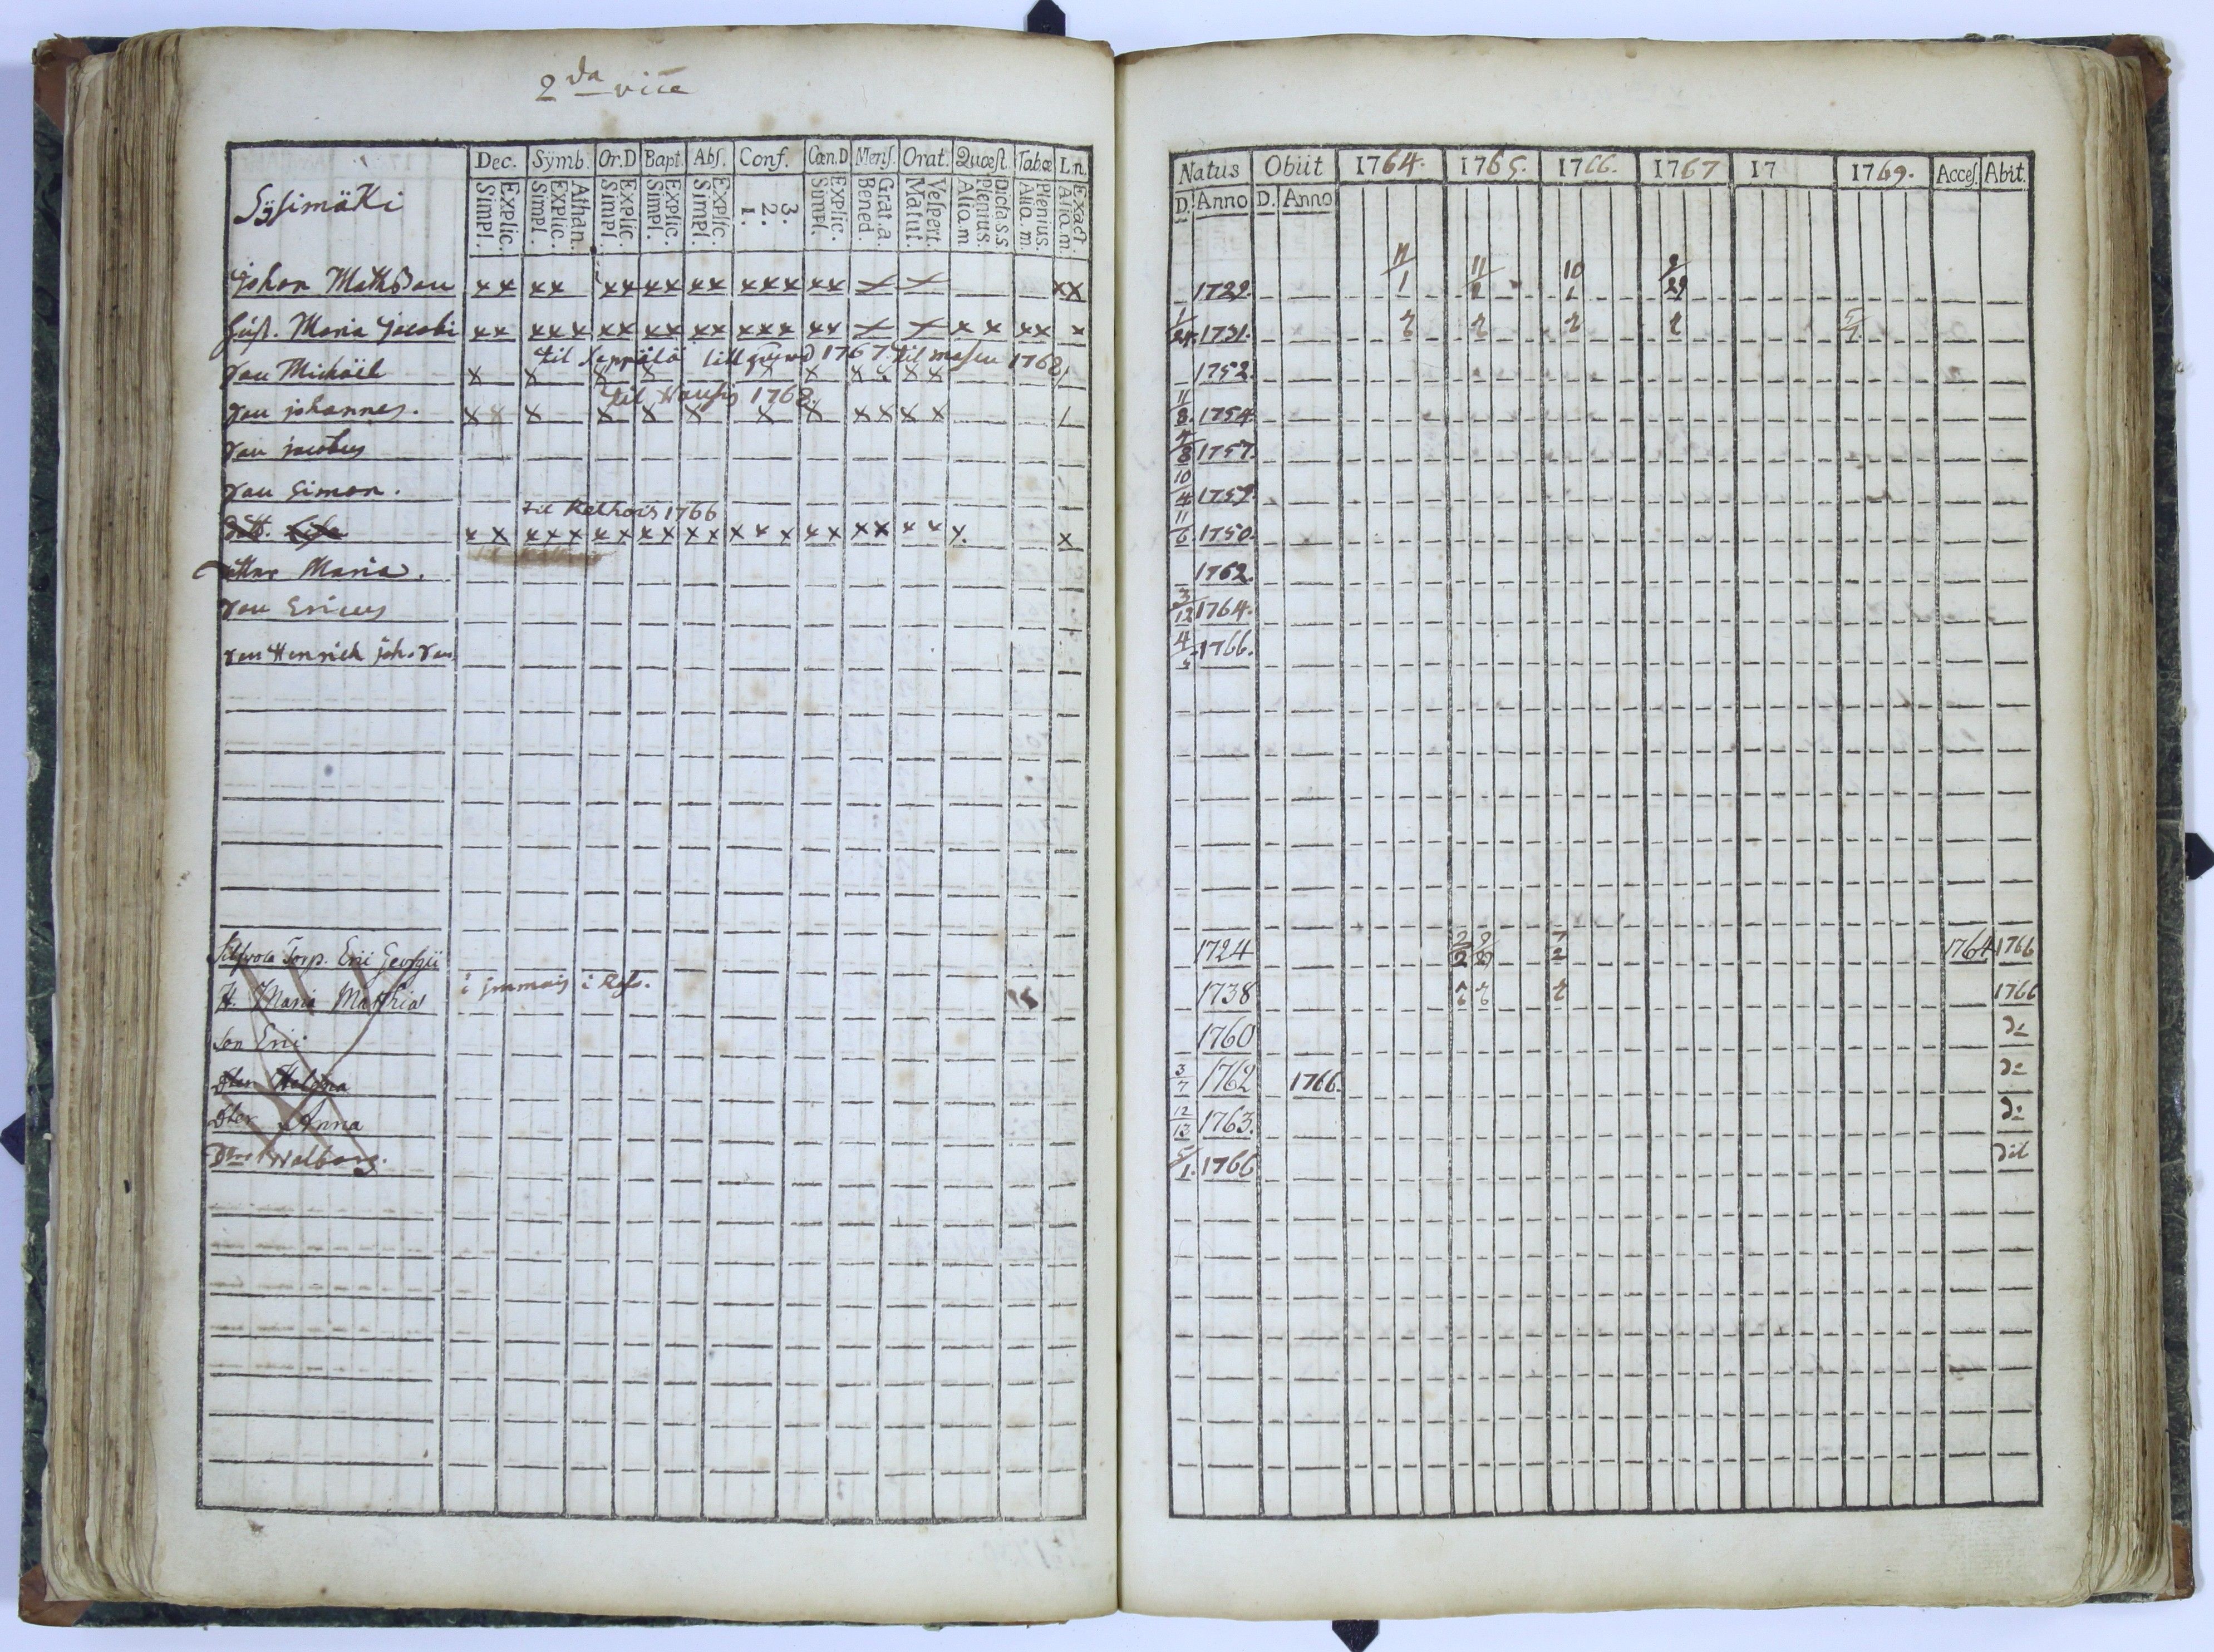 2da vice
Dec. Symb. Or.D Bapt. Abs. Conf. Cœn.D Mens. Orat. Quæst. Tabæ L.n.
Sÿsimäki
Simpl. Explic. Simpl. Explic. Athan. Simpl. Explic. Simpl. Explic. Simpl. Explic. 1. 2. 3. Simpl. Explic. Bened. Grat.a. Matut. Vespert. Aliq.m Plenius. Dicta s.s. Aliq.m. Plenius. Aliq.m. Exact.
Johan Mathsson x x x x x x x x x x x x x x x x x
Hust. Maria Jacobi x x x x x x x x x x x x x x x x x x x x
til Seppälä till 1767. til 1768
son Michäel x x x x x x x x x x
til Haufis 1768.
son Johannes. x x x x x x x x x x x x
son Jacobus
son Simon.
til Kethois 1766
x x x x x x x x x x x x x x x x x x x x x
dotter Maria.
son Ericus
son Henrich Joh. son
Torp. Eric Georgii
H. Maria Matthiæ i jmmais i
Son Eric
Dter Helena
Dter Anna
Dter Walborg.
Natus Obiit 1764. 1765. 1766. 1767 17 1769. Acces. Abit.
D. Anno D. Anno
1729. 11/1 11/2 10/1 2/29
1/24 1731. 5/1
1752.
11/8. 1754
4/8 1757.
10/4 1759.
11/6 1750.
1762.
3/12 1764.
4/5 1766.
1724 2/2 7/2 1764 1766
1738 1766
1760 do
3/7 1762 1766. do
12/13 1763. do
5/1. 1766 dit